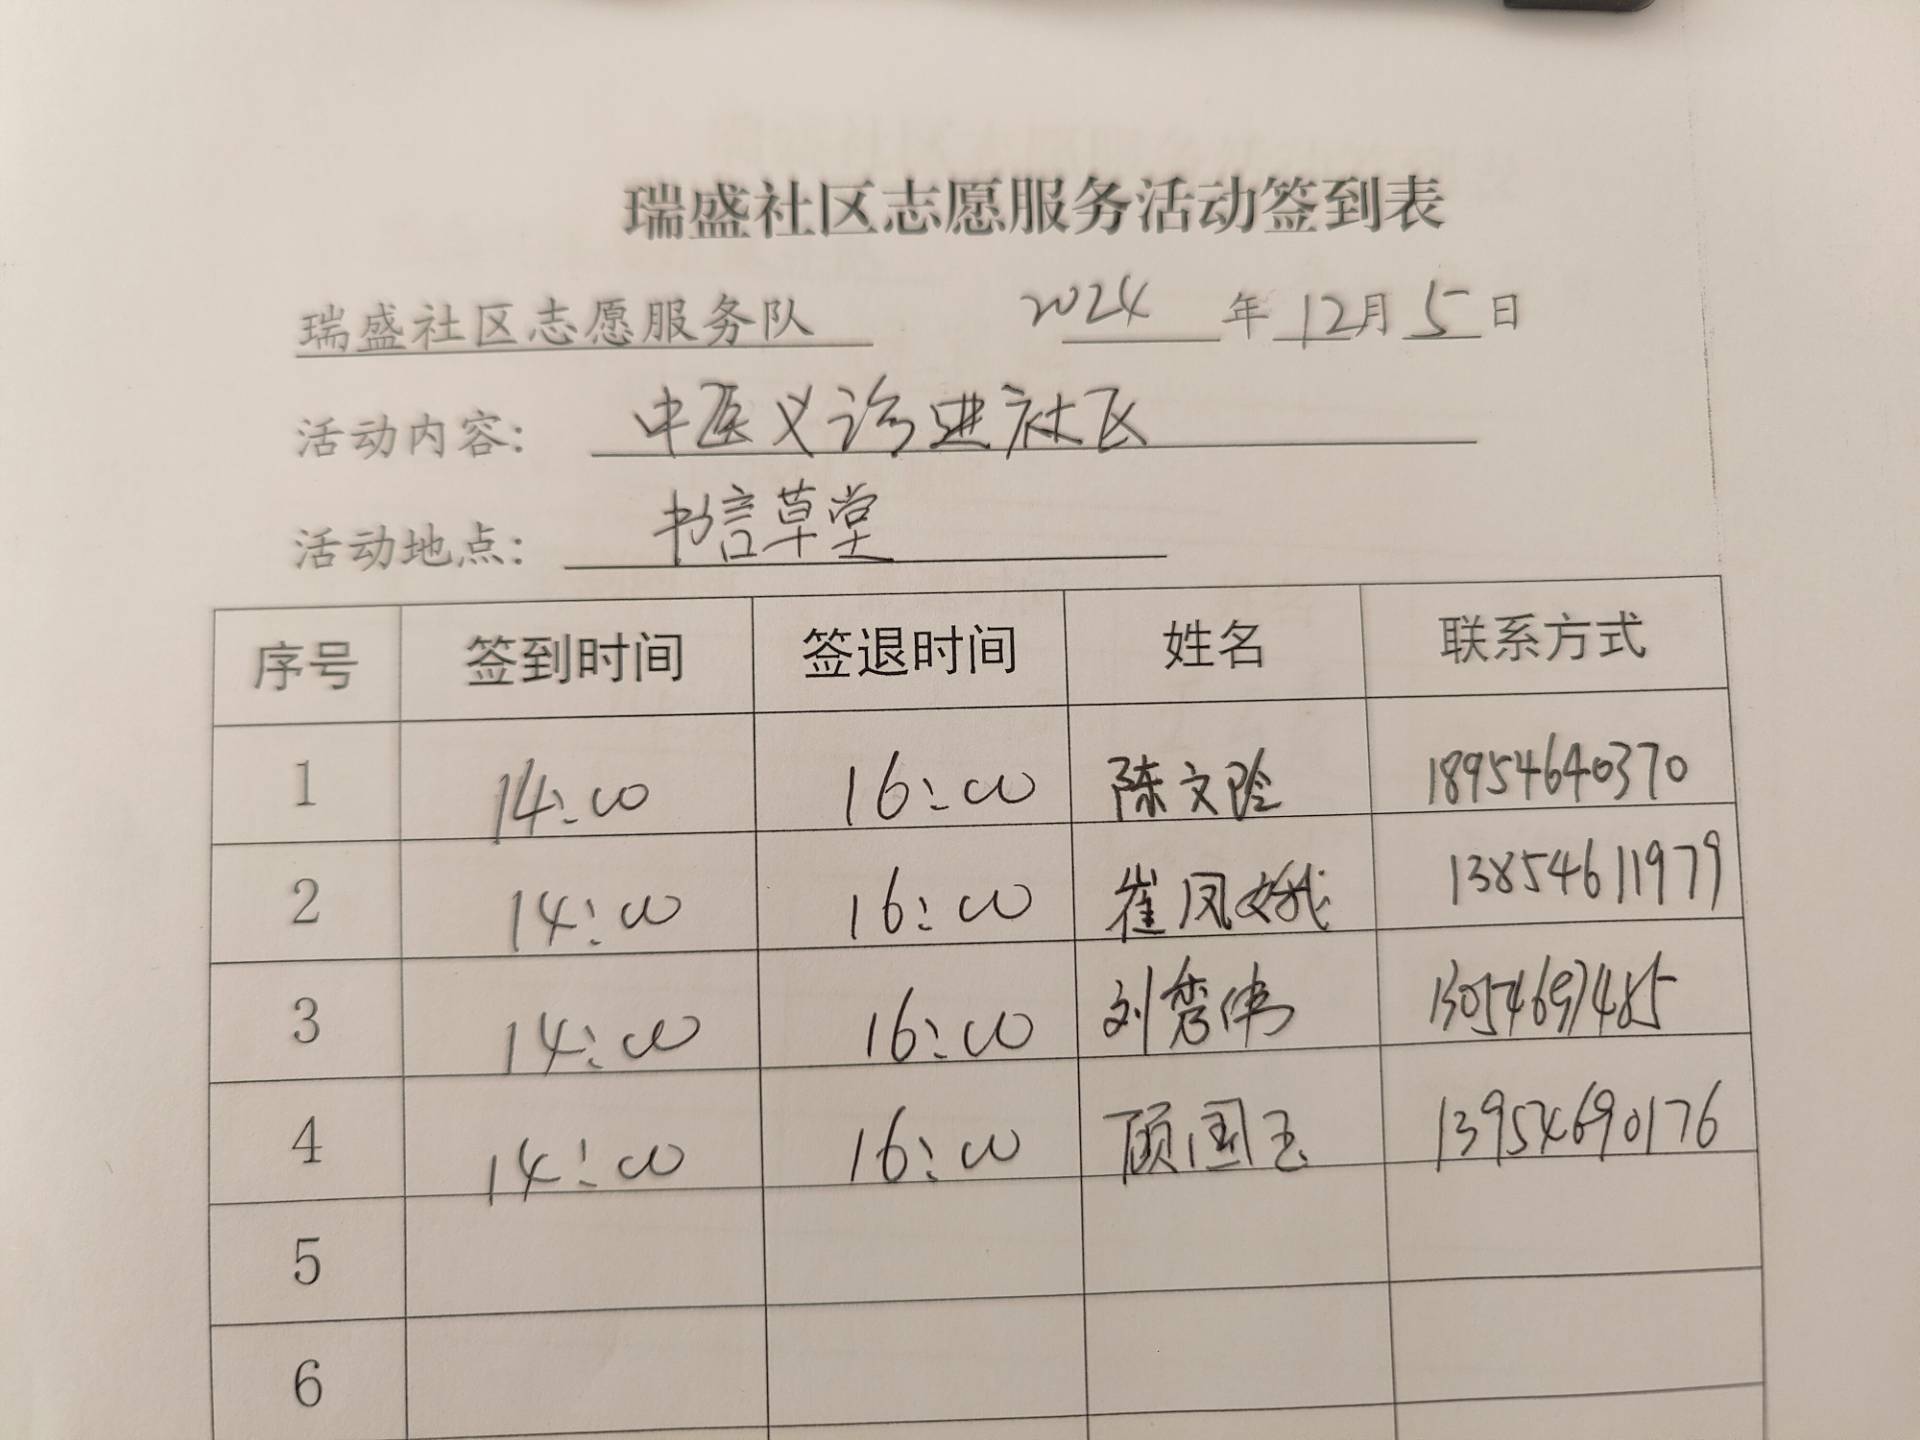 瑞盛社区志愿服务活动签到表
瑞盛社区志愿服务队 2024 年 12 月 5 日
活动内容： 中医义诊进社区
活动地点： 书信草堂
序号 签到时间 签退时间 姓名 联系方式
1 14:00 16:00 陈文玲 18954640370
2 14:00 16:00 崔凤娥 13854611979
3 14:00 16:00 刘秀伟 13054697485
4 14:00 16:00 顾国玉 13954690176
5
6